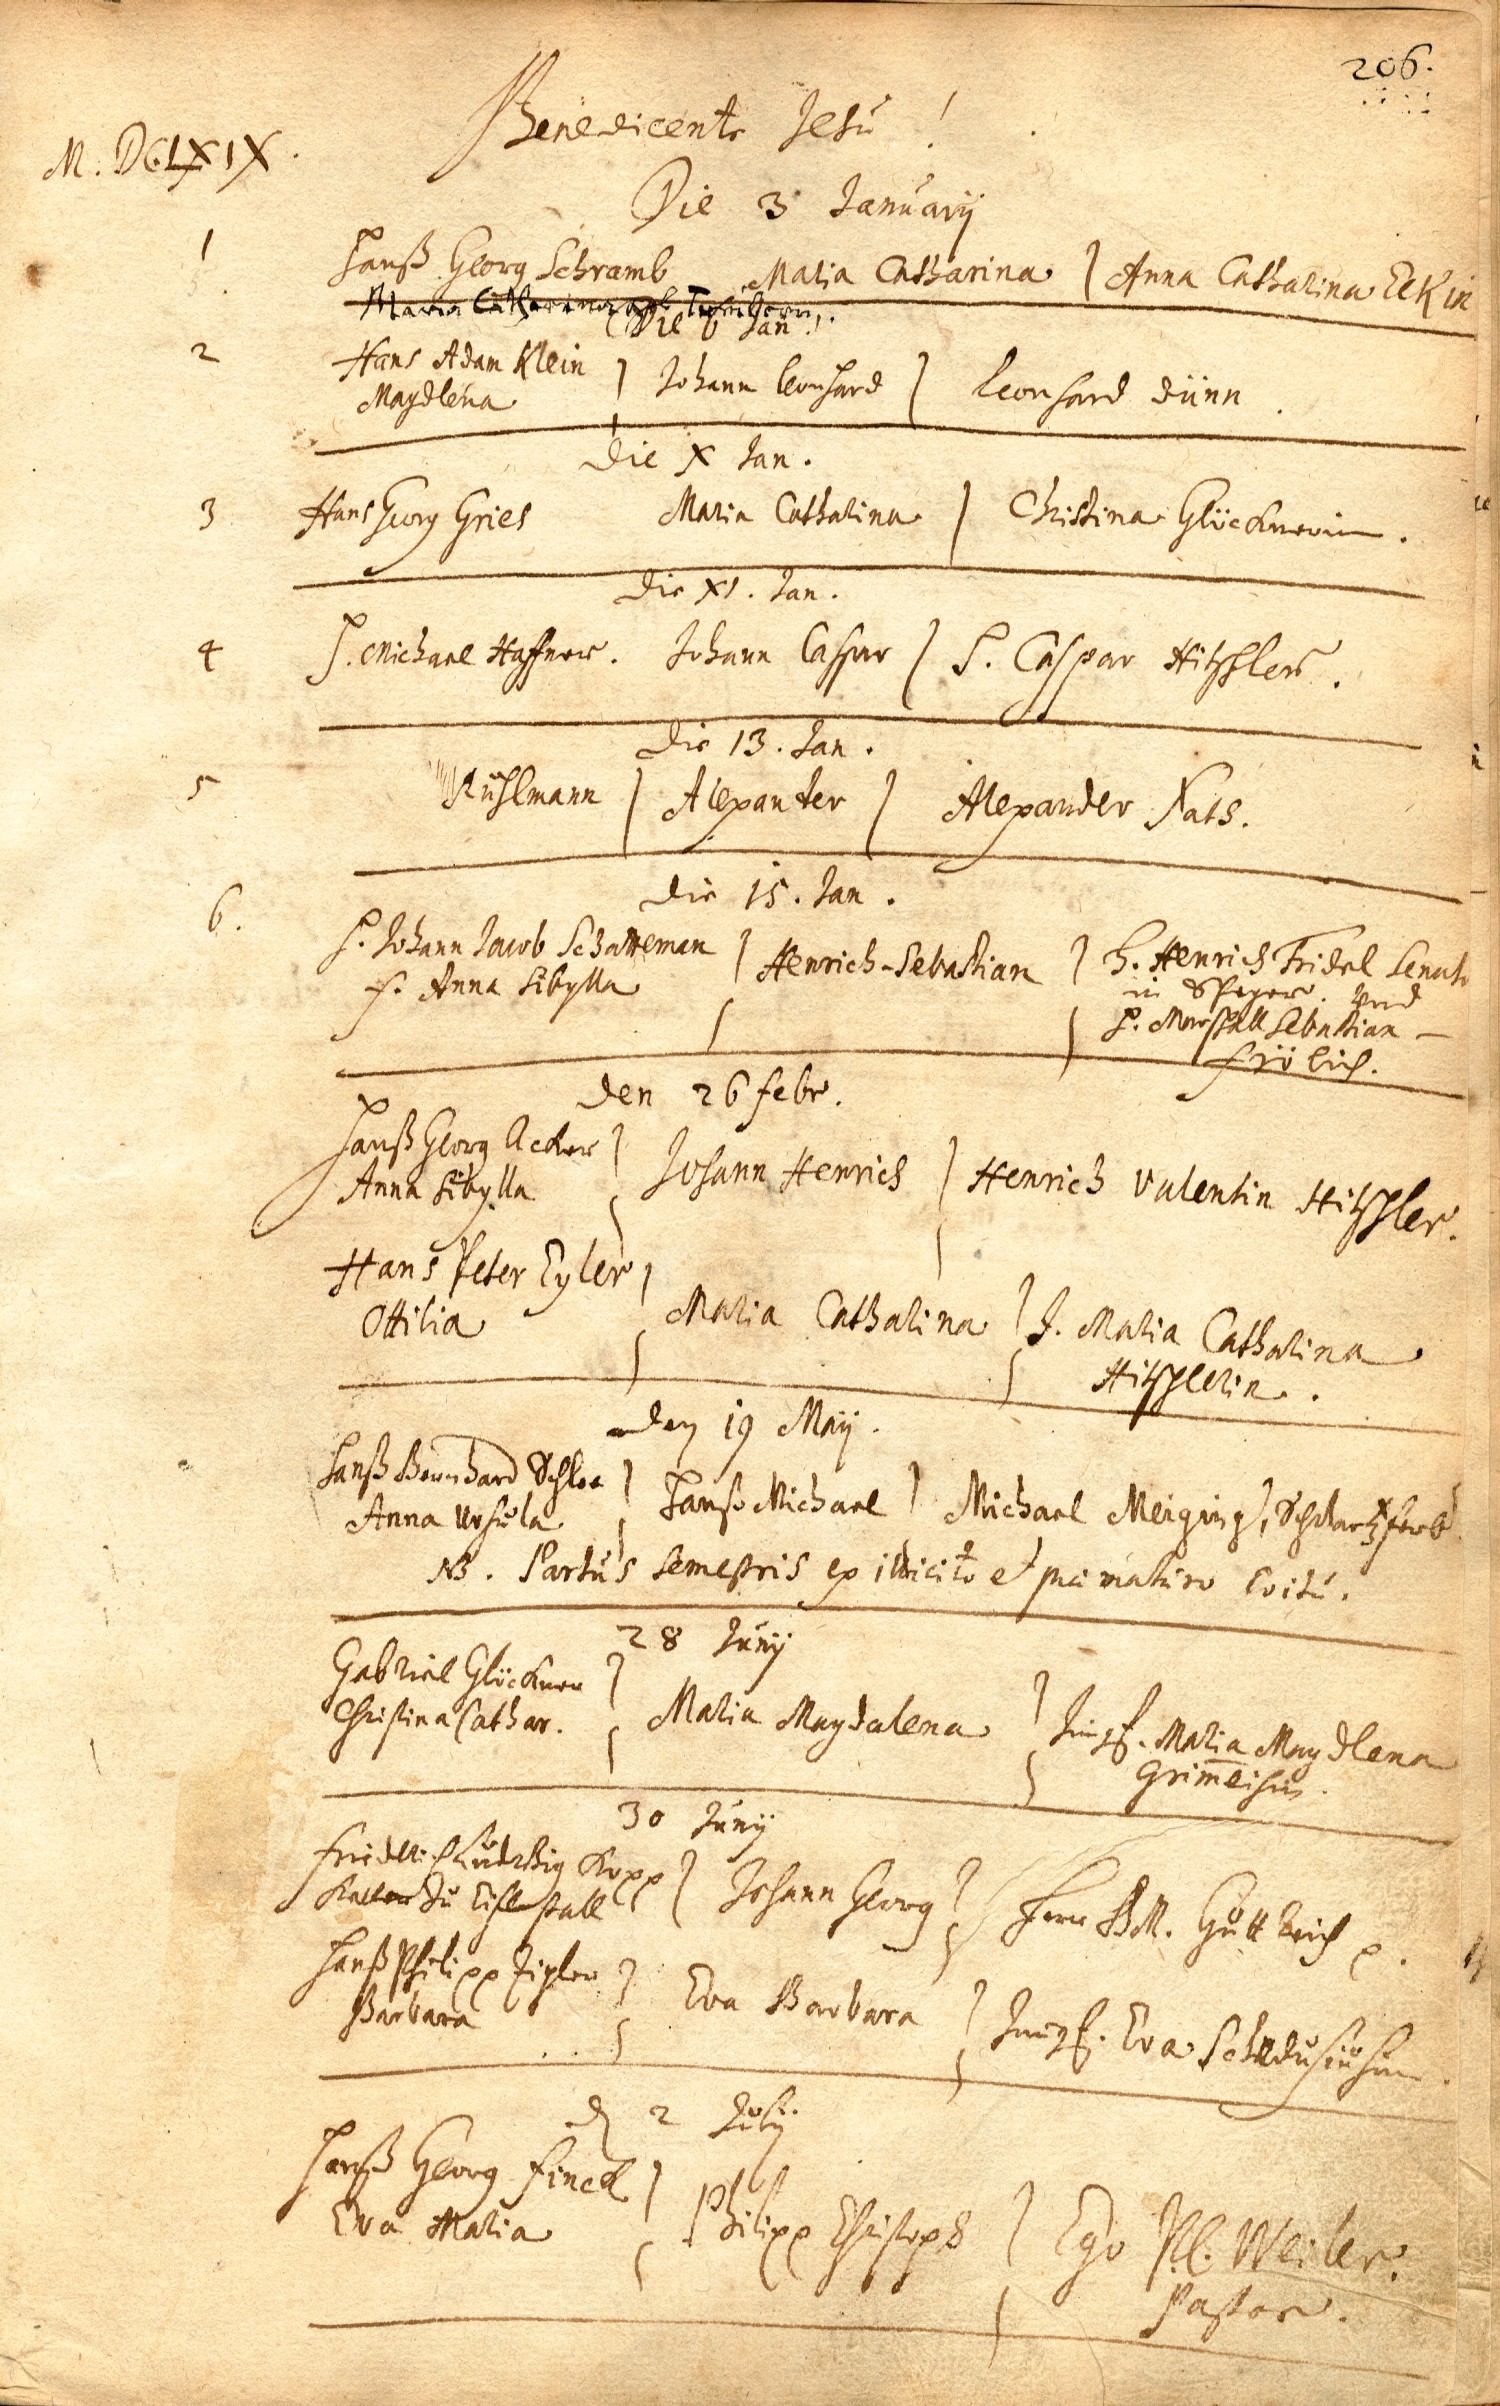 206.
Benedicente Jesu !
M. DCLXIX.
Die 3 Januarij
1
Hanß Georg Schramb Maria Catharina } Anna Catharina Eckin
Maria Catharina
Die 6 Jan.
2
Hans Adam Klein } Johann Leonhard } Leonhard Dünn.
Magdlena
Die X Jan.
3 Hans Georg Gries Maria Catharina } Christina Glöcknerin.
Die XI. Jan.
4 H. Michael Haffner. Johann Caspar } H. Caspar Hitzhler.
Die 13. Jan.
5 Kuhlmann } Alexanter } Alexander Nats.
Die 15. Jan.
6. H. Johann Jacob Schatteman } Henrich-Sebastian } H. Henrich Fridel Senat
F. Anna Sibylla
in Speyer. Und
H. Marshall Sebastian –
Frölich.
Den 26 Febr.
Hanß Georg Acker } Johann Henrich } Henrich Valentin Hitzhler.
Anna Sibylla
Hans Peter Eyler } Maria Catharina } J. Maria Catharina
Ottilia
Hitzhlerin.
Den 19 Maij.
Hanß Bernhard } Hanß Michael } Michael
Anna Ursula
NB. Partus semestris ex illicito et praematuro coitu.
28 Junij
Gabriel Glöckner
Christina Cathar. } Maria Magdalena } Jungf. Maria Magdlena
Grim̅eisin.
30 Junij
Friedrich Ludwig Kopp } Johann Georg } Herr BM. Guttleich p.
Keller zu
Hanß Philipp Zigler } Eva Barbara } Jungf. Eva
Barbara
d 2 Julij
Hanß Georg Finck } Philipp Christoph } Ego Pl. Weiler.
Eva Maria
Pastor.